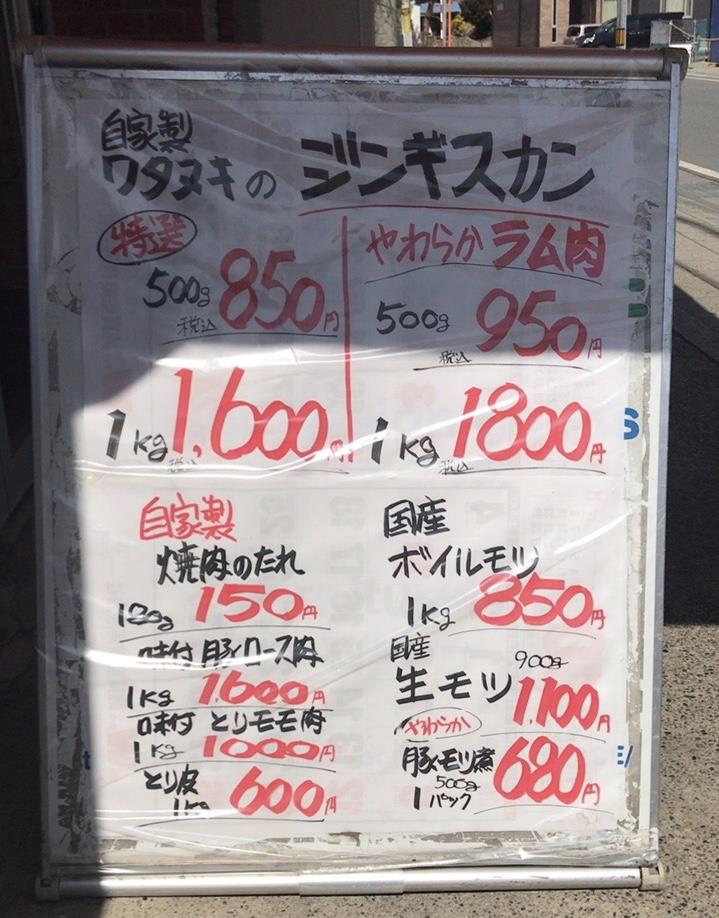 自家製
ワタヌキの ジンギスカン
特選
500g 850円
税込
1kg 1,600円
税込
やわらか ラム肉
500g 950円
税込
1kg 1800円
税込
自家製
焼肉のたれ
180g 150円
味付 豚ロース肉
1kg 1,600円
味付 とりモモ肉
1kg 1000円
とり皮
1kg 600円
国産
ボイルモツ
1kg 850円
国産
生モツ 900g
やわらか 1,100円
豚モツ煮
500g
1パック 680円